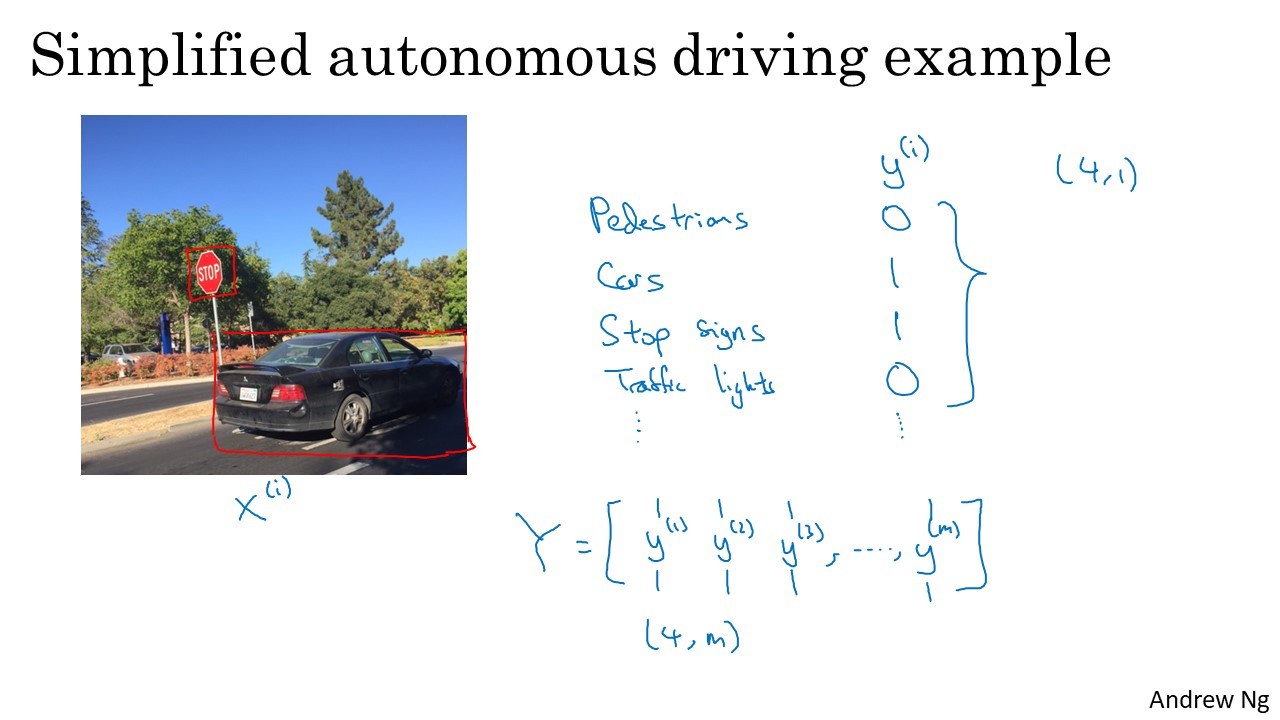 Simplified autonomous driving example
STOP
x^(i)
y^(i) (4,1)
Pedestrians 0
Cars 1
Stop signs 1
Traffic lights 0
⋮ ⋮
Y = [ y^(1) y^(2) y^(3), ....., y^(m) ]
(4, m)
Andrew Ng